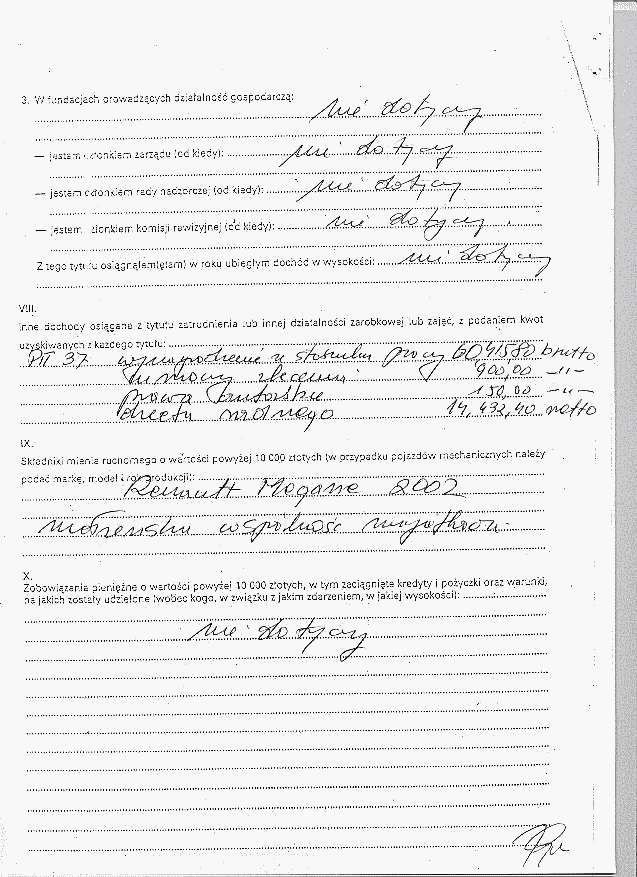 3. W fundacjach prowadzących działalność gospodarczą:
nie dotyczy
— jestem członkiem zarządu (od kiedy): nie dotyczy
— jestem członkiem rady nadzorczej (od kiedy): nie dotyczy
— jestem członkiem komisji rewizyjnej (od kiedy): nie dotyczy.
Z tego tytułu osiągnąłem(ęłam) w roku ubiegłym dochód w wysokości: nie dotyczy
VIII.
Inne dochody osiągane z tytułu zatrudnienia lub innej działalności zarobkowej lub zajęć, z podaniem kwot
uzyskiwanych z każdego tytułu:
PIT 37 wynagrodzenie ze stosunku pracy brutto
umowy zlecenia 900,00 —"—
prawa autorskie 150,00 —"—
dieta radnego 14,432,40 netto
IX.
Składniki mienia ruchomego o wartości powyżej 10 000 złotych (w przypadku pojazdów mechanicznych należy
podać markę, model i rok produkcji):
Renault Megane 2002
małżeńska wspólność majątkowa
X.
Zobowiązania pieniężne o wartości powyżej 10 000 złotych, w tym zaciągnięte kredyty i pożyczki oraz warunki,
na jakich zostały udzielone (wobec kogo, w związku z jakim zdarzeniem, w jakiej wysokości):
nie dotyczy